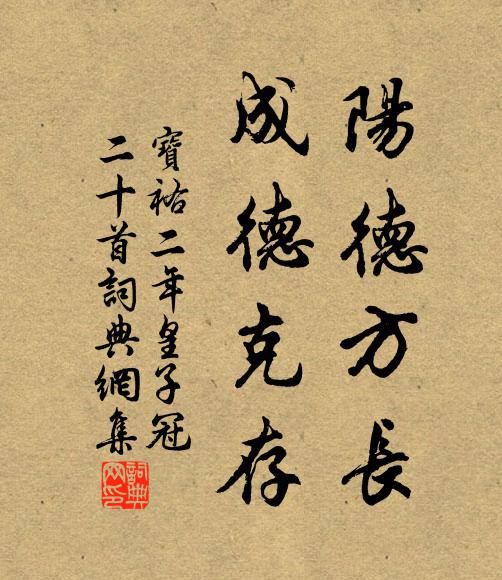 陽德方長
成德克存
寶祐二年皇子冠
二十首詞典網集
詞典
网印